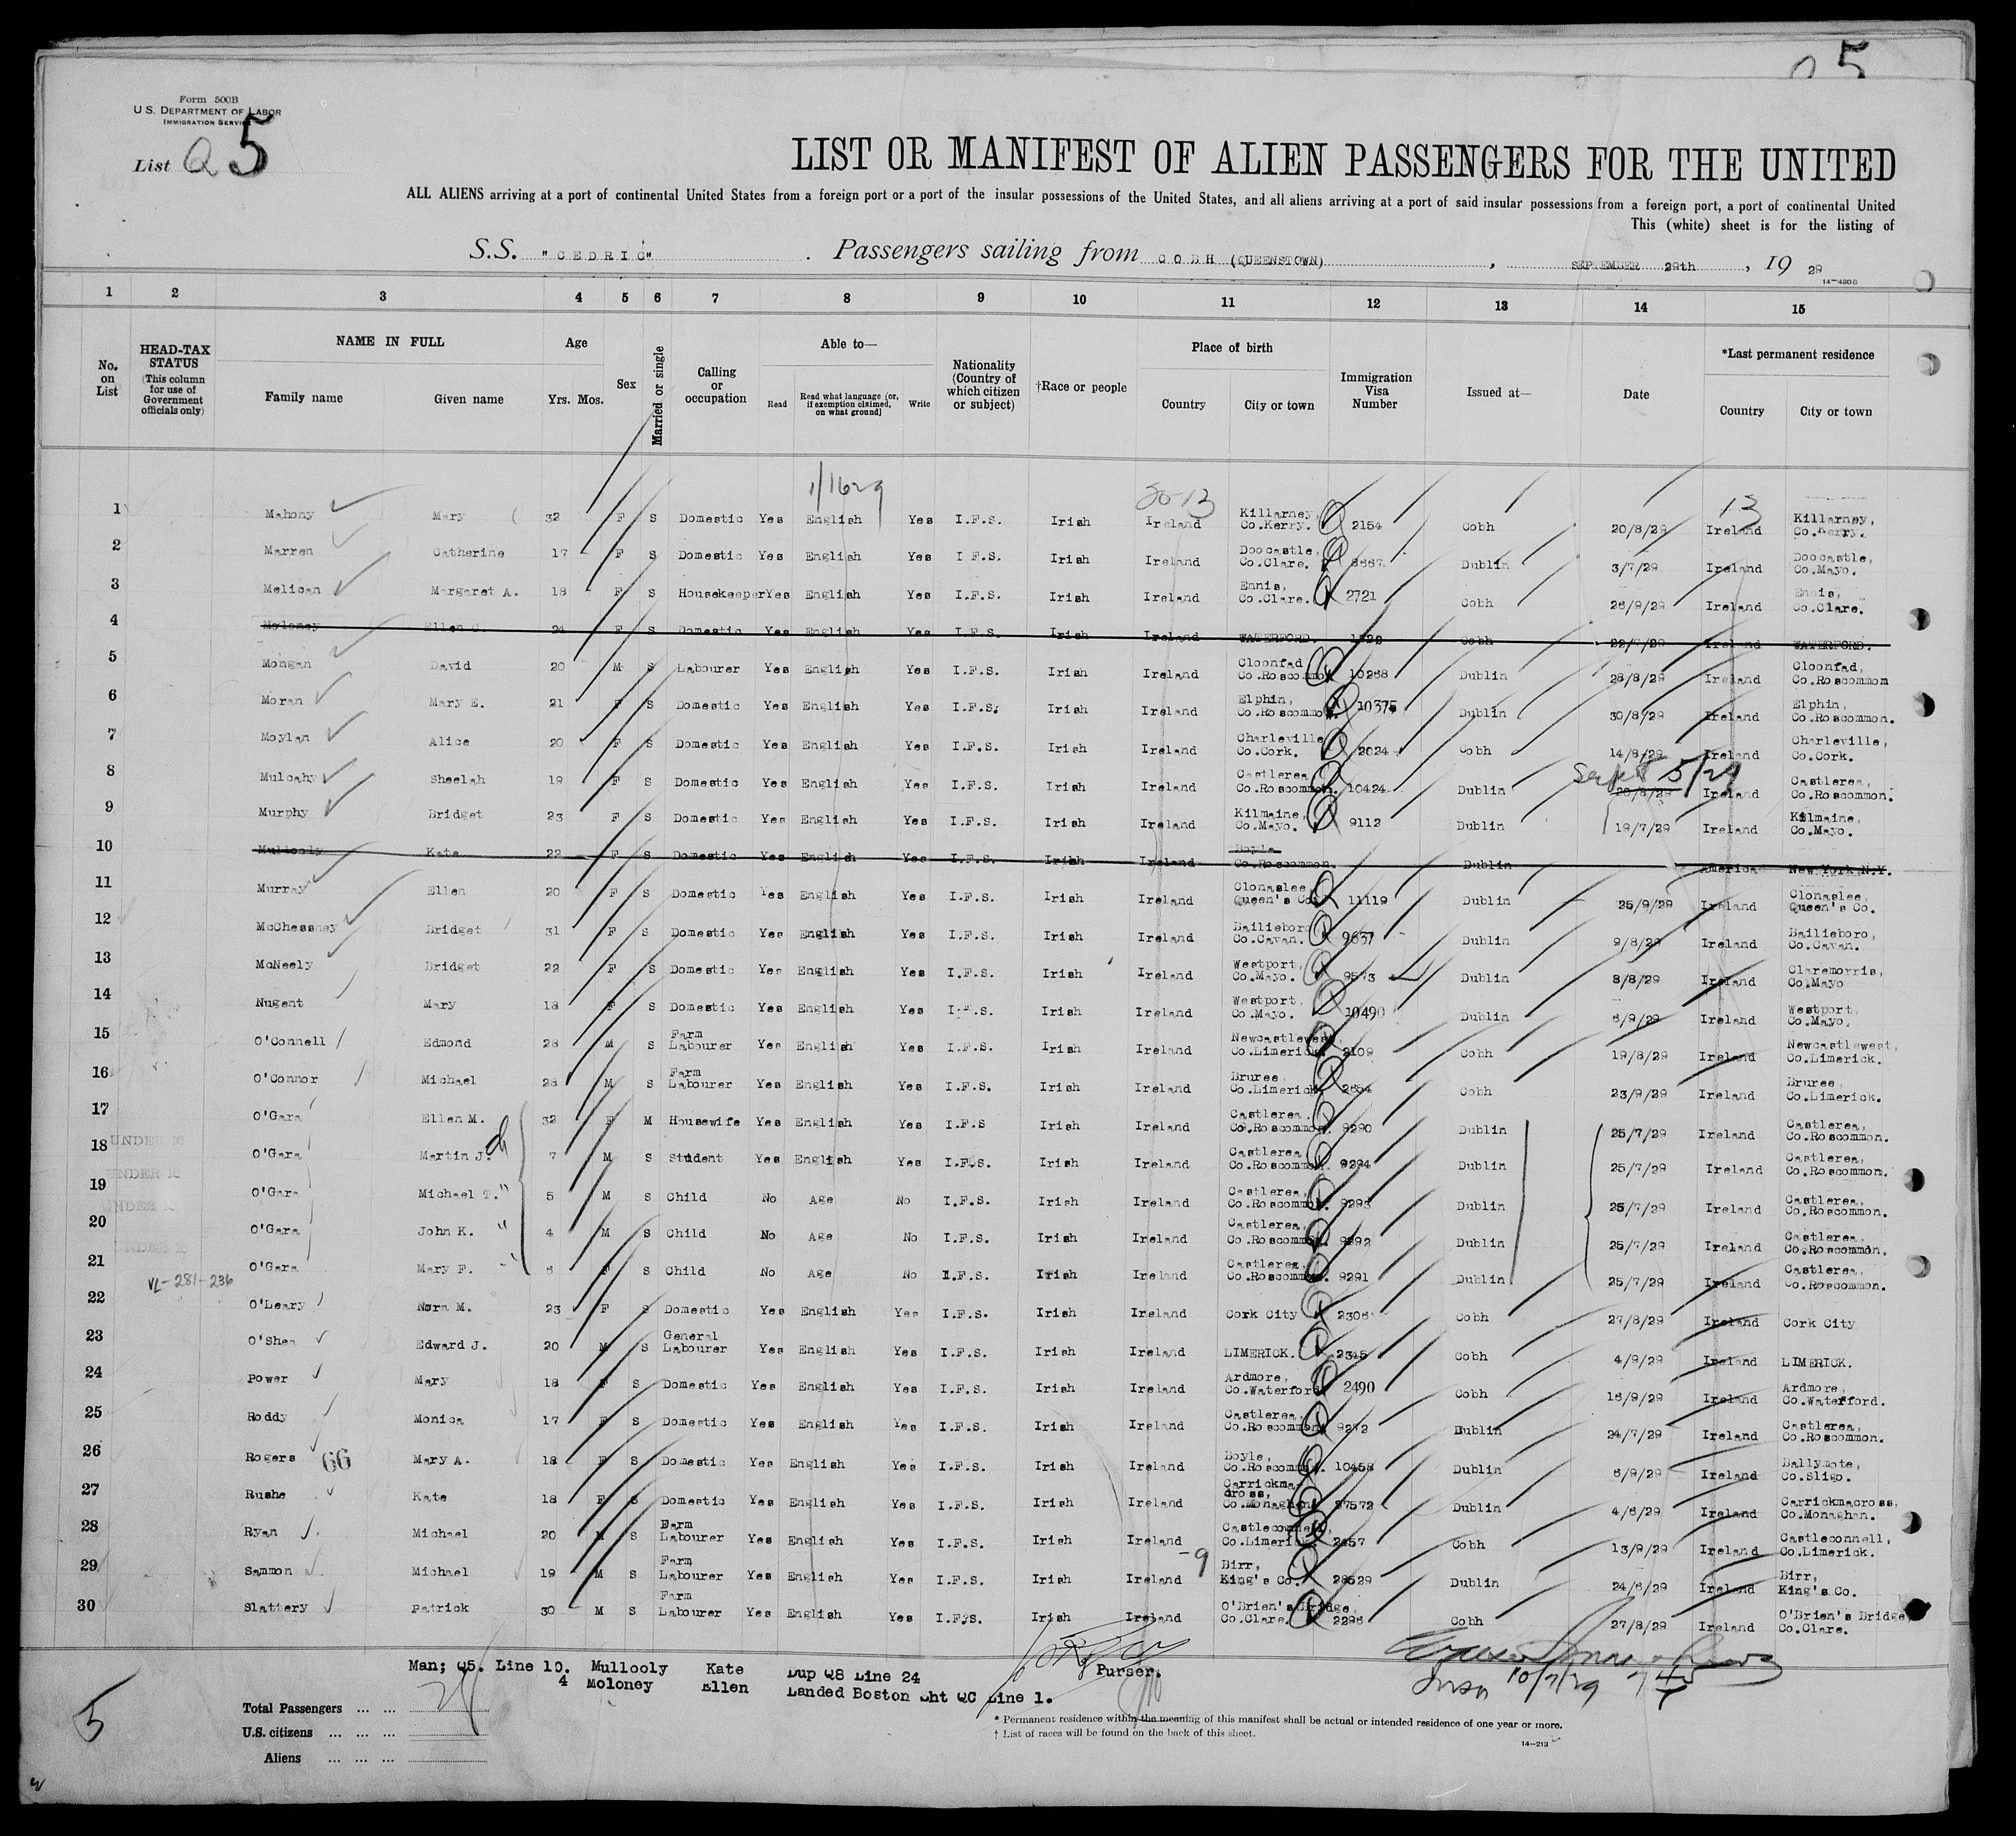 Form 500B
U.S. DEPARTMENT OF LABOR
IMMIGRATION SERVICE
List Q 5
5
LIST OR MANIFEST OF ALIEN PASSENGERS FOR THE UNITED
ALL ALIENS arriving at a port of continental United States from a foreign port or a port of the insular possessions of the United States, and all aliens arriving at a port of said insular possessions from a foreign port, a port of continental United
This (white) sheet is for the listing of
S.S. "CEDRIC" . Passengers sailing from COBH (QUEENSTOWN) , SEPTEMBER 29th , 19 29
1 2 3 4 5 6 7 8 9 10 11 12 13 14 15
No. on List
HEAD-TAX STATUS (This column for use of Government officials only)
NAME IN FULL Family name Given name
Age Yrs. Mos.
Sex
Married or single
Calling or occupation
Able to— Read Read what language (or, if exemption claimed, on what ground) Write
Nationality (Country of which citizen or subject)
†Race or people
Place of birth Country City or town
Immigration Visa Number
Issued at—
Date
*Last permanent residence Country City or town
1 Mahony Mary 32 F S Domestic Yes English Yes I.F.S. Irish Ireland Killarney, Co.Kerry. 2154 Cobh 20/8/29 Ireland Killarney, Co.Kerry.
2 Marren Catherine 17 F S Domestic Yes English Yes I F.S. Irish Ireland Doocastle, Co.Clare. Dublin 3/7/29 Ireland Doocastle, Co.Mayo.
3 Melican Margaret A. 18 F S Housekeeper Yes English Yes I.F.S. Irish Ireland Ennis, Co.Clare. 2721 Cobh 26/9/29 Ireland Ennis, Co.Clare.
4 Moloney Ellen C. 24 F S Domestic Yes English Yes I.F.S. Irish Ireland WATERFORD. Cobh 22/7/29 Ireland WATERFORD.
5 Mongan David 20 M S Labourer Yes English Yes I.F.S. Irish Ireland Cloonfad, Co.Roscommon 10268 Dublin 28/8/29 Ireland Cloonfad, Co.Roscommom
6 Moran Mary E. 21 F S Domestic Yes English Yes I.F.S. Irish Ireland Elphin, Co.Roscommon. 10375 Dublin 30/8/29 Ireland Elphin, Co.Roscommon.
7 Moylan Alice 20 F S Domestic Yes English Yes I.F.S. Irish Ireland Charleville Co.Cork. 2024 Cobh 14/8/29 Ireland Charleville, Co.Cork.
8 Mulcahy Sheelah 19 F S Domestic Yes English Yes I.F.S. Irish Ireland Castlerea Co.Roscommon. 10424 Dublin Sept 5/29 Ireland Castlerea, Co.Roscommon.
9 Murphy Bridget 23 F S Domestic Yes English Yes I.F.S. Irish Ireland Kilmaine, Co.Mayo. 9112 Dublin 19/7/29 Ireland Kilmaine, Co.Mayo.
10 Mullooly Kate 22 F S Domestic Yes English Yes I.F.S. Irish Ireland Boyle Co.Roscommon. Dublin America New York N.Y.
11 Murray Ellen 20 F S Domestic Yes English Yes I.F.S. Irish Ireland Clonaslee, Queen's Co. 11119 Dublin 25/9/29 Ireland Clonaslee, Queen's Co.
12 McChessney Bridget 31 F S Domestic Yes English Yes I.F.S. Irish Ireland Bailieboro Co.Cavan. 9637 Dublin 9/8/29 Ireland Bailieboro, Co.Cavan.
13 McNeely Bridget 22 F S Domestic Yes English Yes I.F.S. Irish Ireland Westport, Co.Mayo. 9573 Dublin 8/8/29 Ireland Claremorris, Co.Mayo
14 Nugent Mary 18 F S Domestic Yes English Yes I.F.S. Irish Ireland Westport, Co.Mayo. 10490 Dublin 6/9/29 Ireland Westport, Co.Mayo.
15 O'Connell Edmond 28 M S Farm Labourer Yes English Yes I.F.S. Irish Ireland Newcastlewest, Co.Limerick. 2109 Cobh 19/8/29 Ireland Newcastlewest, Co.Limerick.
16 O'Connor Michael 28 M S Farm Labourer Yes English Yes I.F.S. Irish Ireland Bruree, Co.Limerick. 2654 Cobh 23/9/29 Ireland Bruree, Co.Limerick.
17 O'Gara Ellen M. 32 F M Housewife Yes English Yes I.F.S Irish Ireland Castlerea, Co.Roscommon. 9290 Dublin 25/7/29 Ireland Castlerea, Co.Roscommon.
18 UNDER 16 O'Gara Martin J. 7 M S Student Yes English Yes I.F.S. Irish Ireland Castlerea Co.Roscommon. 9294 Dublin 25/7/29 Ireland Castlerea, Co.Roscommon.
19 UNDER 16 O'Gara Michael T. " 5 M S Child No Age No I.F.S. Irish Ireland Castlerea, Co.Roscommon. 9293 Dublin 25/7/29 Ireland Castlerea, Co.Roscommon.
20 UNDER 16 O'Gara John K. " 4 M S Child No Age No I.F.S. Irish Ireland Castlerea, Co.Roscommon. 9292 Dublin 25/7/29 Ireland Castlerea, Co.Roscommon.
21 UNDER 16 O'Gara Mary F. 6 F S Child No Age No I.F.S. Irish Ireland Castlerea, Co.Roscommon. 9291 Dublin 25/7/29 Ireland Castlerea, Co.Roscommon.
VL-281-236
22 O'Leary Nora M. 23 F S Domestic Yes English Yes I.F.S. Irish Ireland Cork City 2306 Cobh 27/8/29 Ireland Cork City
23 O'Shea Edward J. 20 M S General Labourer Yes English Yes I.F.S. Irish Ireland LIMERICK. 2345 Cobh 4/9/29 Ireland LIMERICK.
24 Power Mary 18 F S Domestic Yes English Yes I.F.S. Irish Ireland Ardmore, Co.Waterford 2490 Cobh 16/9/29 Ireland Ardmore, Co.Waterford.
25 Roddy Monica 17 F S Domestic Yes English Yes I.F.S. Irish Ireland Castlerea, Co.Roscommon. 9272 Dublin 24/7/29 Ireland Castlerea, Co.Roscommon.
26 Rogers 66 Mary A. 18 F S Domestic Yes English Yes I.F.S. Irish Ireland Boyle, Co.Roscommon. 10458 Dublin 6/9/29 Ireland Ballymote, Co.Sligo.
27 Rushe Kate 18 F S Domestic Yes English Yes I.F.S. Irish Ireland Carrickma-cross, Co.Monaghan. 27572 Dublin 4/6/29 Ireland Carrickmacross, Co.Monaghan.
28 Ryan Michael 20 M S Farm Labourer Yes English Yes I.F.S. Irish Ireland Castleconnell, Co.Limerick. 2457 Cobh 13/9/29 Ireland Castleconnell, Co.Limerick.
29 Sammon Michael 19 M S Farm Labourer Yes English Yes I.F.S. Irish Ireland -9 Birr, King's Co. 28529 Dublin 24/6/29 Ireland Birr, King's Co.
30 Slattery Patrick 30 M S Farm Labourer Yes English Yes I.F.S. Irish Ireland O'Brien's Bridge, Co.Clare. 2296 Cobh 27/8/29 Ireland O'Brien's Bridge, Co.Clare.
Man; Q5. Line 10. Mullooly Kate Dup Q8 Line 24
4 Moloney Ellen Landed Boston Sht QC Line 1.
Purser.
10/7/29
5
Total Passengers ... ...
U.S. citizens ... ... ...
Aliens ... ... ...
* Permanent residence within the meaning of this manifest shall be actual or intended residence of one year or more.
† List of races will be found on the back of this sheet.
14—213